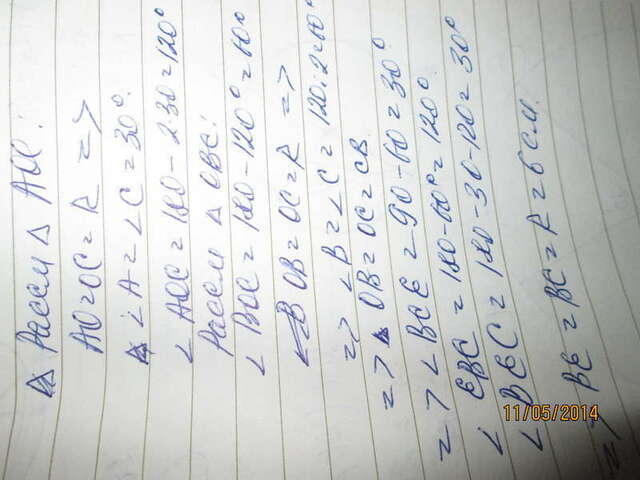 Рассм Δ AOC:
AO=OC=R =>
∠A=∠C=30°.
∠AOC=180-2·30=120°
Рассм Δ OBC:
∠BOC=180-120°=60°
OB=OC=R =>
=> ∠B=∠C=120:2=60°
=> OB=OC=CB
=> ∠BCE=90-60=30°
∠EBC=180-60°=120°
∠BEC=180-30-120=30°
=> BE=BC=R=6см.
11/05/2014